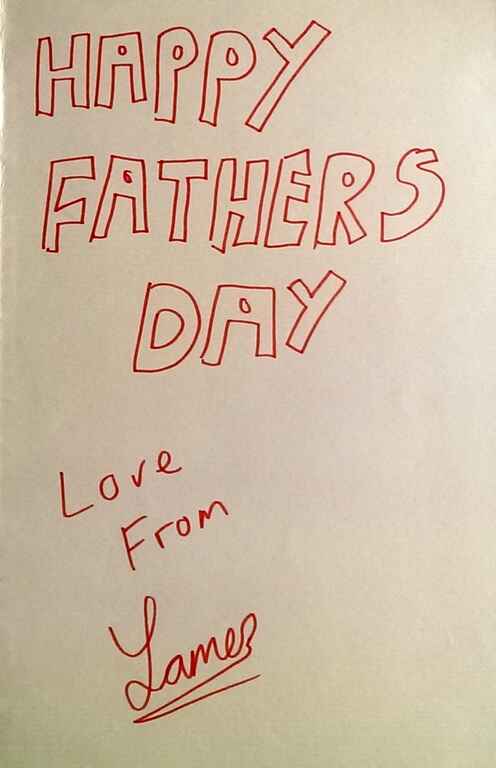 HAPPY
FATHERS
DAY
Love
From
James